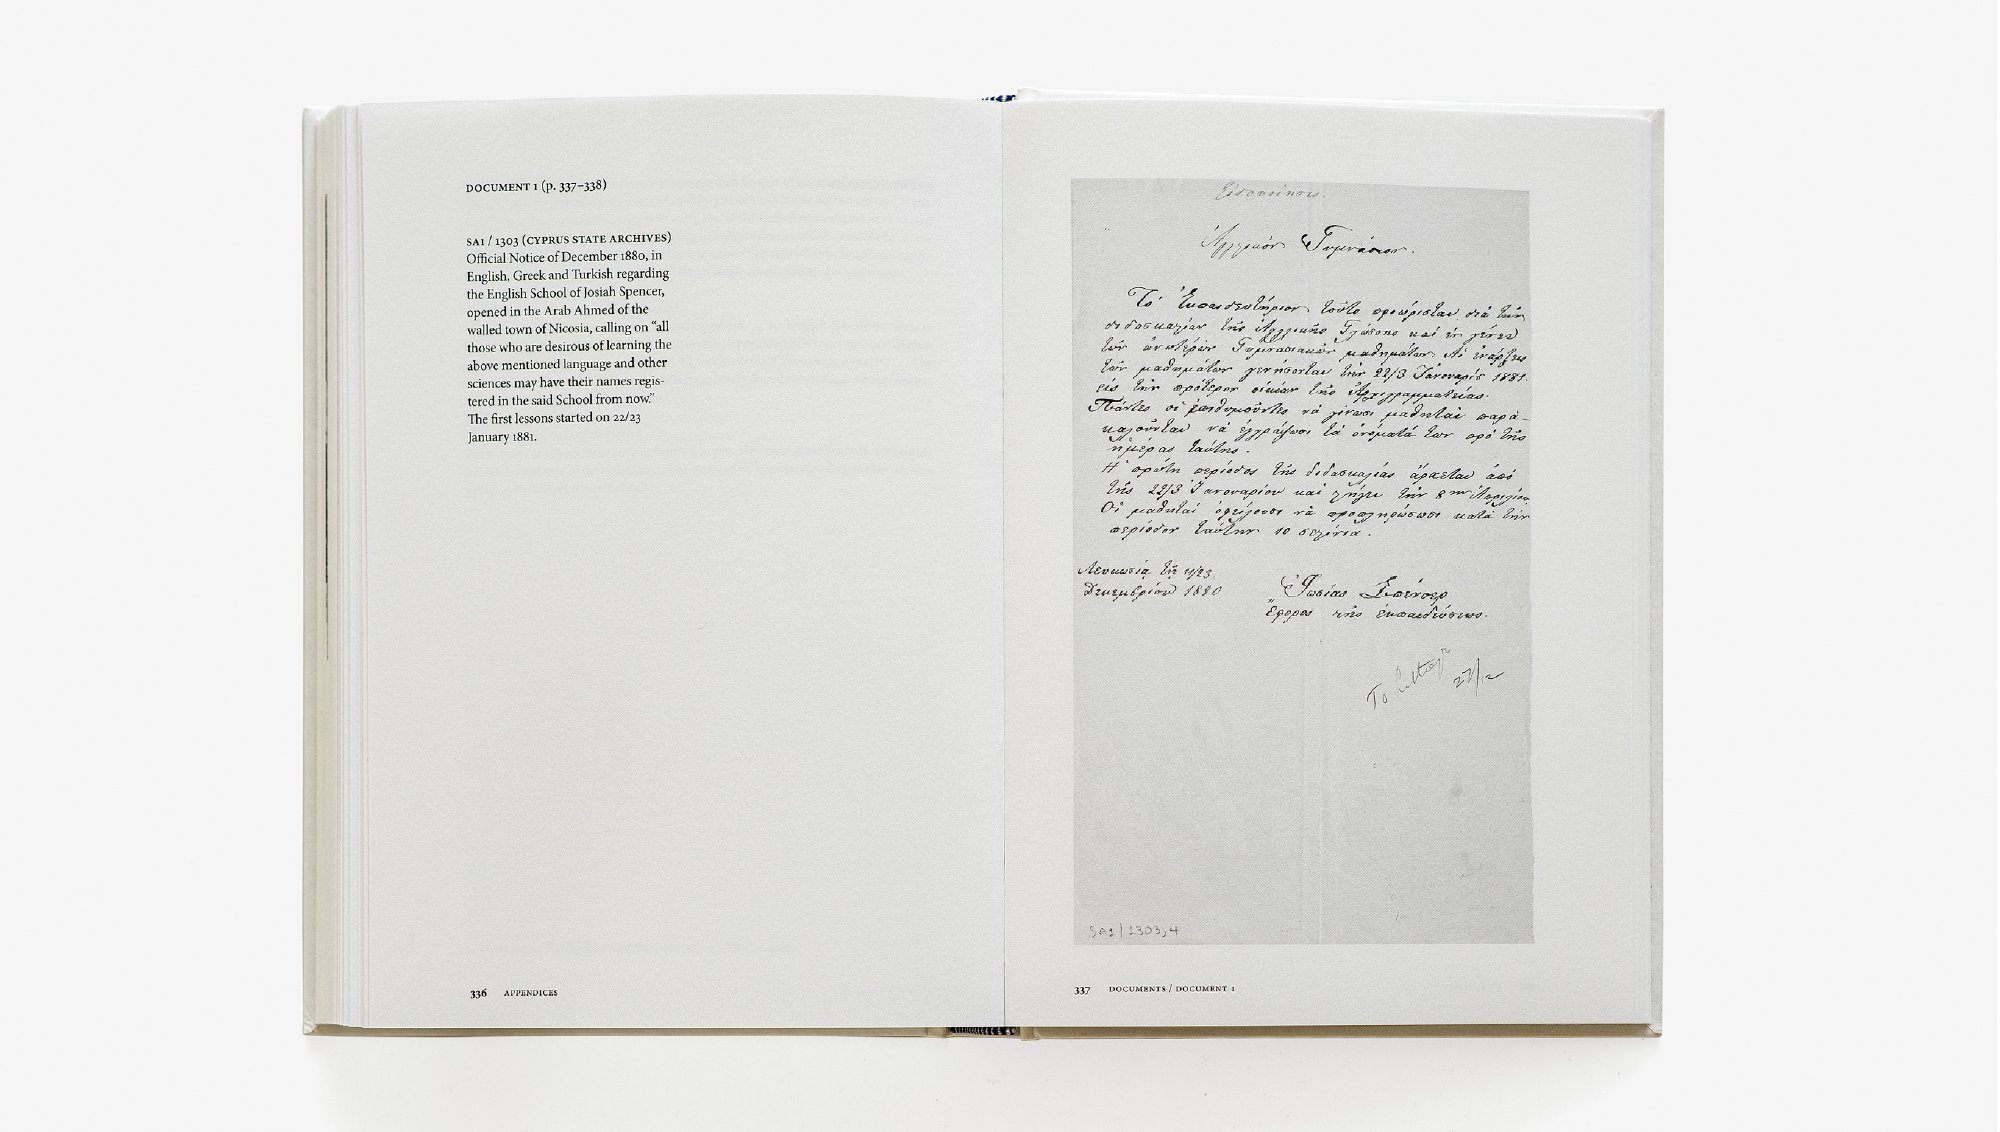 DOCUMENT 1 (p. 337–338)
SA1 / 1303 (CYPRUS STATE ARCHIVES)
Official Notice of December 1880, in
English, Greek and Turkish regarding
the English School of Josiah Spencer,
opened in the Arab Ahmed of the
walled town of Nicosia, calling on “all
those who are desirous of learning the
above mentioned language and other
sciences may have their names regis-
tered in the said School from now.”
The first lessons started on 22/23
January 1881.
336 APPENDICES
Εἰδοποίησις.
Ἀγγλικὸν Γυμνάσιον.
Τὸ Ἐκπαιδευτήριον τοῦτο προώρισται διὰ τὴν
διδασκαλίαν τῆς Ἀγγλικῆς Γλώσσης καὶ ἐν γένει
τῶν ἀνωτέρων Γυμνασιακῶν μαθημάτων. Αἱ ἐνάρξεις
τῶν μαθημάτων γενήσονται τὴν 22/3 Ἰανουαρίου 1881.
εἰς τὴν πρότερον οἰκίαν τῆς Ἀρχιγραμματείας.
Πάντες οἱ ἐπιθυμοῦντες νὰ γίνωσι μαθηταὶ παρα-
καλοῦνται νὰ ἐγγράψωσι τὰ ὀνόματά των πρὸ τῆς
ἡμέρας ταύτης.
Ἡ πρώτη περίοδος τῆς διδασκαλίας ἄρχεται ἀπὸ
τῆς 22/3 Ἰανουαρίου καὶ λήγει τὴν 8ην Ἀπριλίου
Οἱ μαθηταὶ ὀφείλουσι νὰ προπληρώσωσι κατὰ τὴν
περίοδον ταύτην 10 σελίνια.
Λευκωσίᾳ τῇ 11/23
Δεκεμβρίου 1880
Ἰωσίας Σπένσερ
Ἔφορος τῆς ἐκπαιδεύσεως.
To
27/12
SA1/1303,4
337 DOCUMENTS / DOCUMENT 1